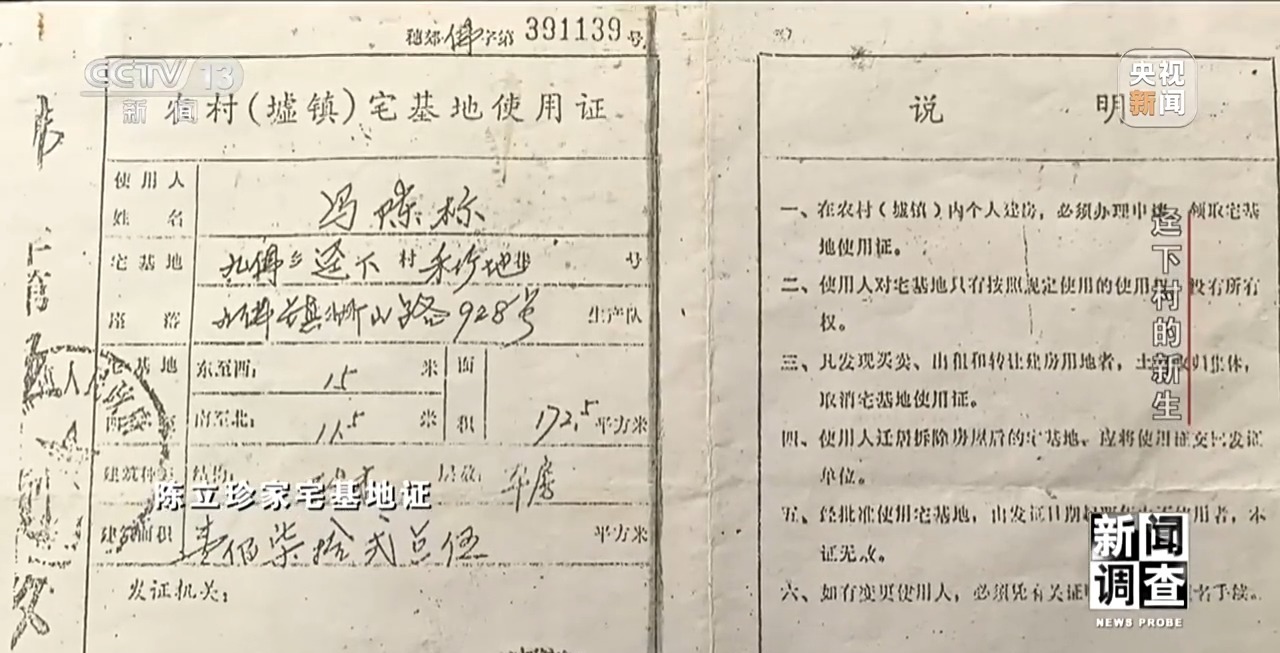 穗郊佛字第391139号
CCTV 13
新闻
农村(墟镇)宅基地使用证
使用人
姓名
冯陈标
宅基地
九佛乡迳下村禾坪地 号
座落
九佛镇狮山路928号 生产队
宅基地
东至西: 15 米
面
南至北: 11.5 米
积
172.5 平方米
结构:
层数: 平房
建筑面积
壹佰柒拾贰点伍 平方米
发证机关:
陈立珍家宅基地证
央视
新闻
说 明
一、在农村(城镇)内个人建房,必须办理申 领取宅基
地使用证。
二、使用人对宅基地只有按照规定使用的使用 没有所有
权。
三、凡发现买卖、出租和转让建房用地者,土 收归集体,
取消宅基地使用证。
四、使用人迁居拆除房屋后的宅基地、应将使用证交回发证
单位。
五、经批准使用宅基地,由发证日期 使用者,本
证无效。
六、如有变更使用人,必须凭有关证 名手续。
迳下村的新生
新闻
调查
NEWS PROBE